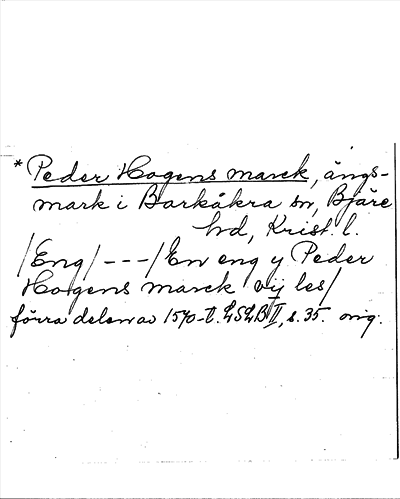 * Peder Hogens marck, ängs-
mark i Barkåkra sn, Bjäre
hd, Krist. l.
/Eng/ --- /En eng y Peder
Hogens marck vij les/
förra delen av 1570-t. LSLB II, s. 35. orig.